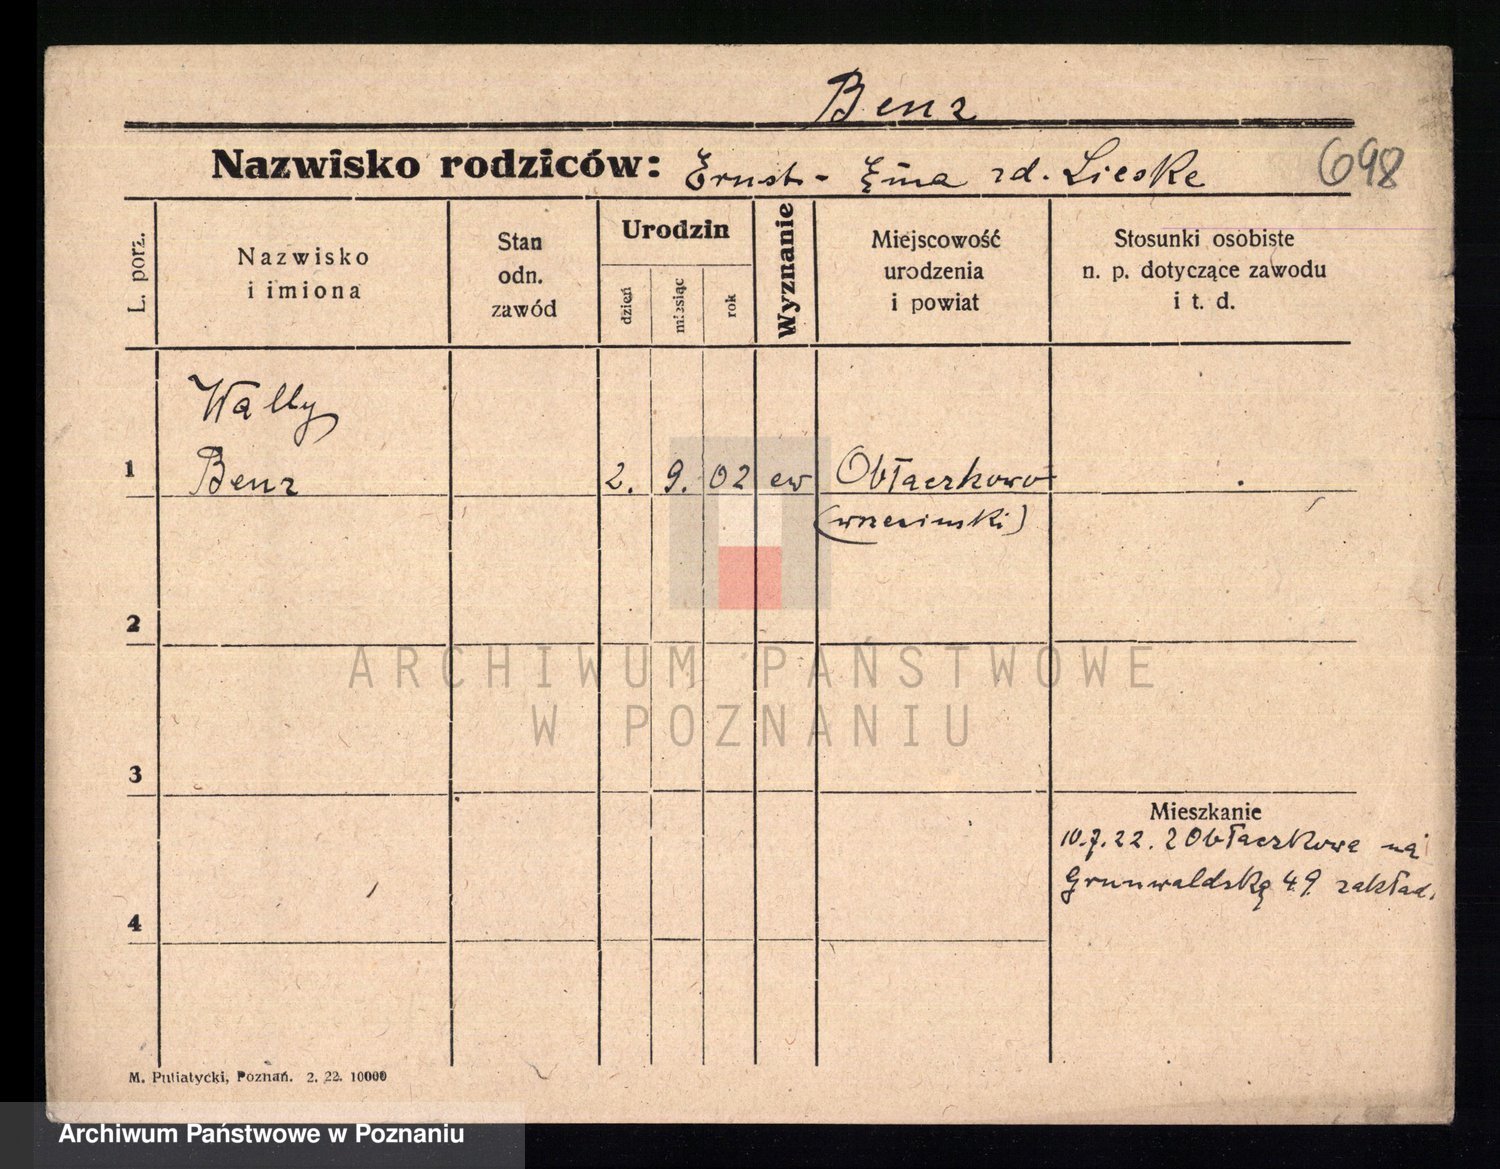 Benz
Nazwisko rodziców: Ernst - Ema zd. Lieske
698
L. porz.
Nazwisko
i imiona
Stan
odn.
zawód
Urodzin
dzień
miesiąc
rok
Wyznanie
Miejscowość
urodzenia
i powiat
Stosunki osobiste
n. p. dotyczące zawodu
i t. d.
Wally
1 Benz 2. 9. 02 ew Obłaczkowo
(wrzesinski)
2
ARCHIWUM PAŃSTWOWE
W POZNANIU
3
Mieszkanie
10.7.22. z Obłaczkowa na
Grunwaldską 49 zakład.
4
M. Putiatycki, Poznań. 2. 22. 10000
Archiwum Państwowe w Poznaniu